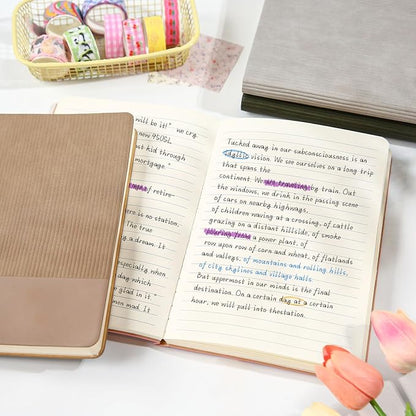 will be it!" we cry.
new 450SL
ast kid through
mortgage."
of retire-
here is no station.
The true
a dream. It
especially when
day which
e glad in it."
men mad. It
Tucked away in our subconsciousness is an
idyllic vision. We see ourselves on a long trip
that spans the
continent. We are traveling by train. Out
the windows, we drink in the passing scene
of cars on nearby highways,
of children waving at a crossing, of cattle
grazing on a distant hillside, of smoke
pouring from a power plant, of
row upon row of corn and wheat, of flatlands
and valleys, of mountains and rolling hills,
of city skylines and village halls.
But uppermost in our minds is the final
destination. On a certain day at a certain
hour, we will pull into thestation.